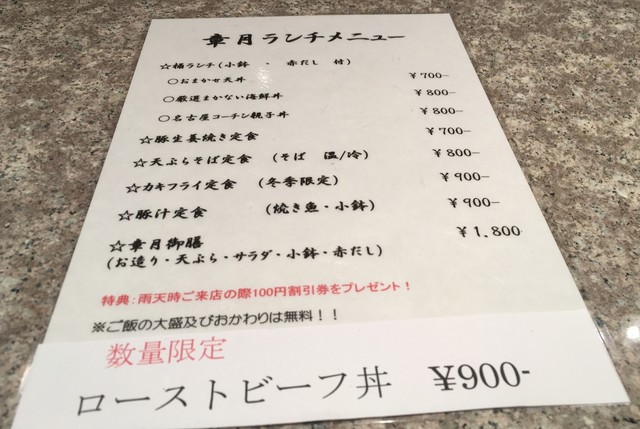 章月ランチメニュー
☆桶ランチ(小鉢 ・ 赤だし 付)
○おまかせ天丼 ¥700-
○厳選まかない海鮮丼 ¥800-
○名古屋コーチン親子丼 ¥800-
☆豚生姜焼き定食 ¥700-
☆天ぷらそば定食 (そば 温/冷) ¥800-
☆カキフライ定食 (冬季限定) ¥900-
☆豚汁定食 (焼き魚・小鉢) ¥900-
☆章月御膳 ¥1,800
(お造り・天ぷら・サラダ・小鉢・赤だし)
特典:雨天時ご来店の際100円割引券をプレゼント!
※ご飯の大盛及びおかわりは無料!!
数量限定
ローストビーフ丼 ¥900-